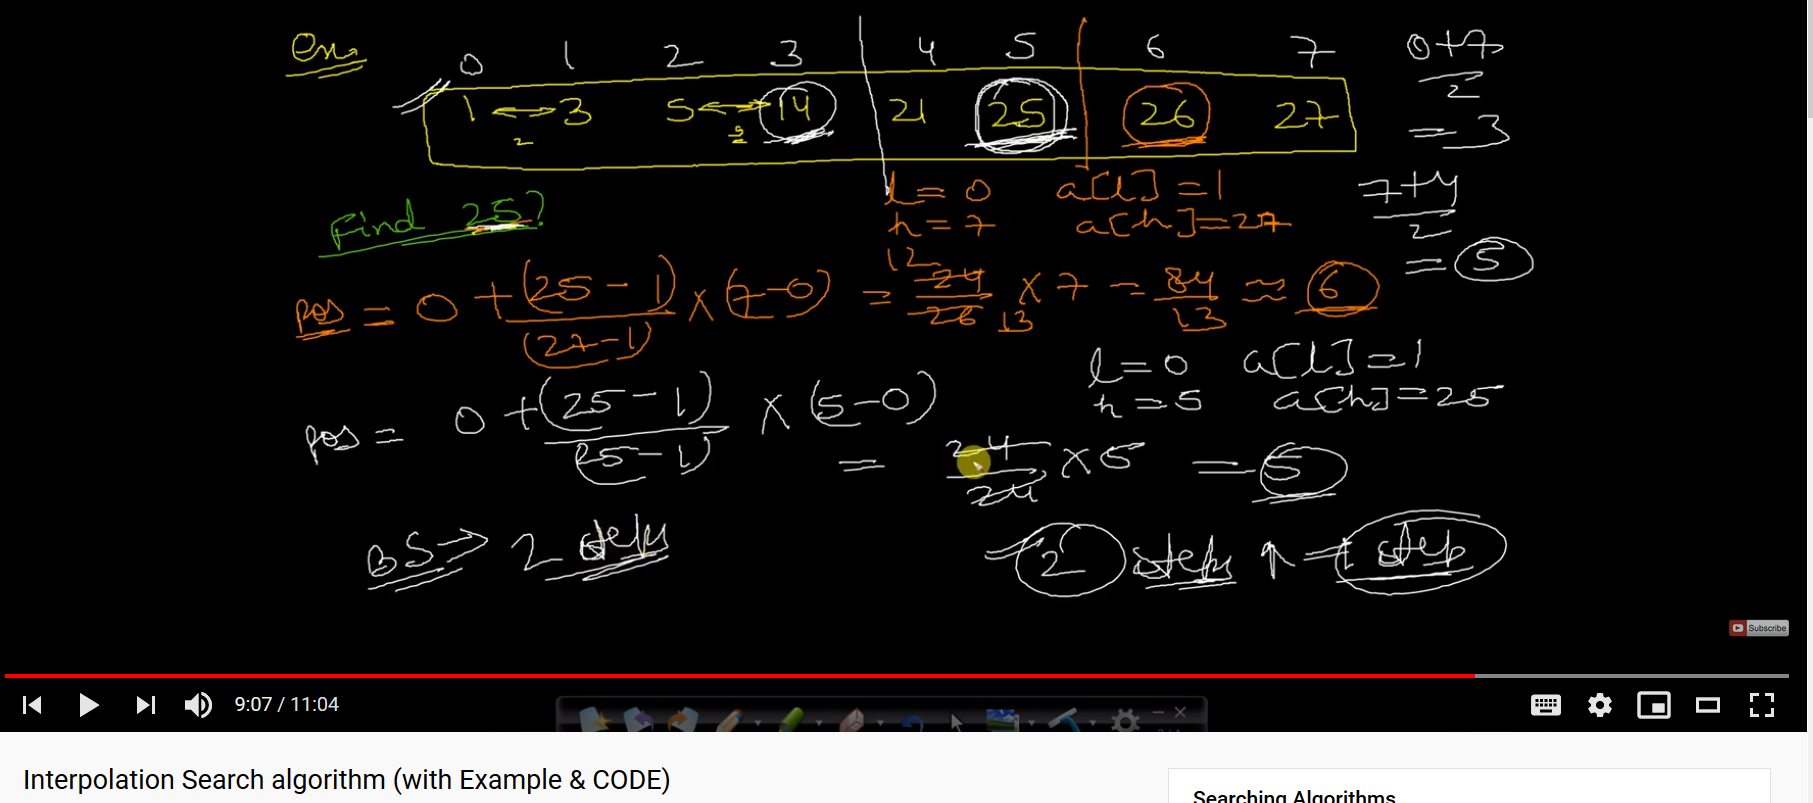 Ex
0 1 2 3 4 5 6 7
1 ↔ 3 5 ↔ 14 21 25 26 27
2 9
0+7
2
= 3
7+4
2
= 5
Find 25?
l = 0 a[l] = 1
h = 7 a[h] = 27
pos = 0 + (25-1) / (27-1) × (7-0) = 24/26 12/13 × 7 = 84/13 ≈ 6
l = 0 a[l] = 1
h = 5 a[h] = 25
pos = 0 + (25-1) / (25-1) × (5-0) = 24/24 × 5 = 5
BS → 2 steps
2 steps 1 step
Subscribe
9:07 / 11:04
Interpolation Search algorithm (with Example & CODE)
Searching Algorithms